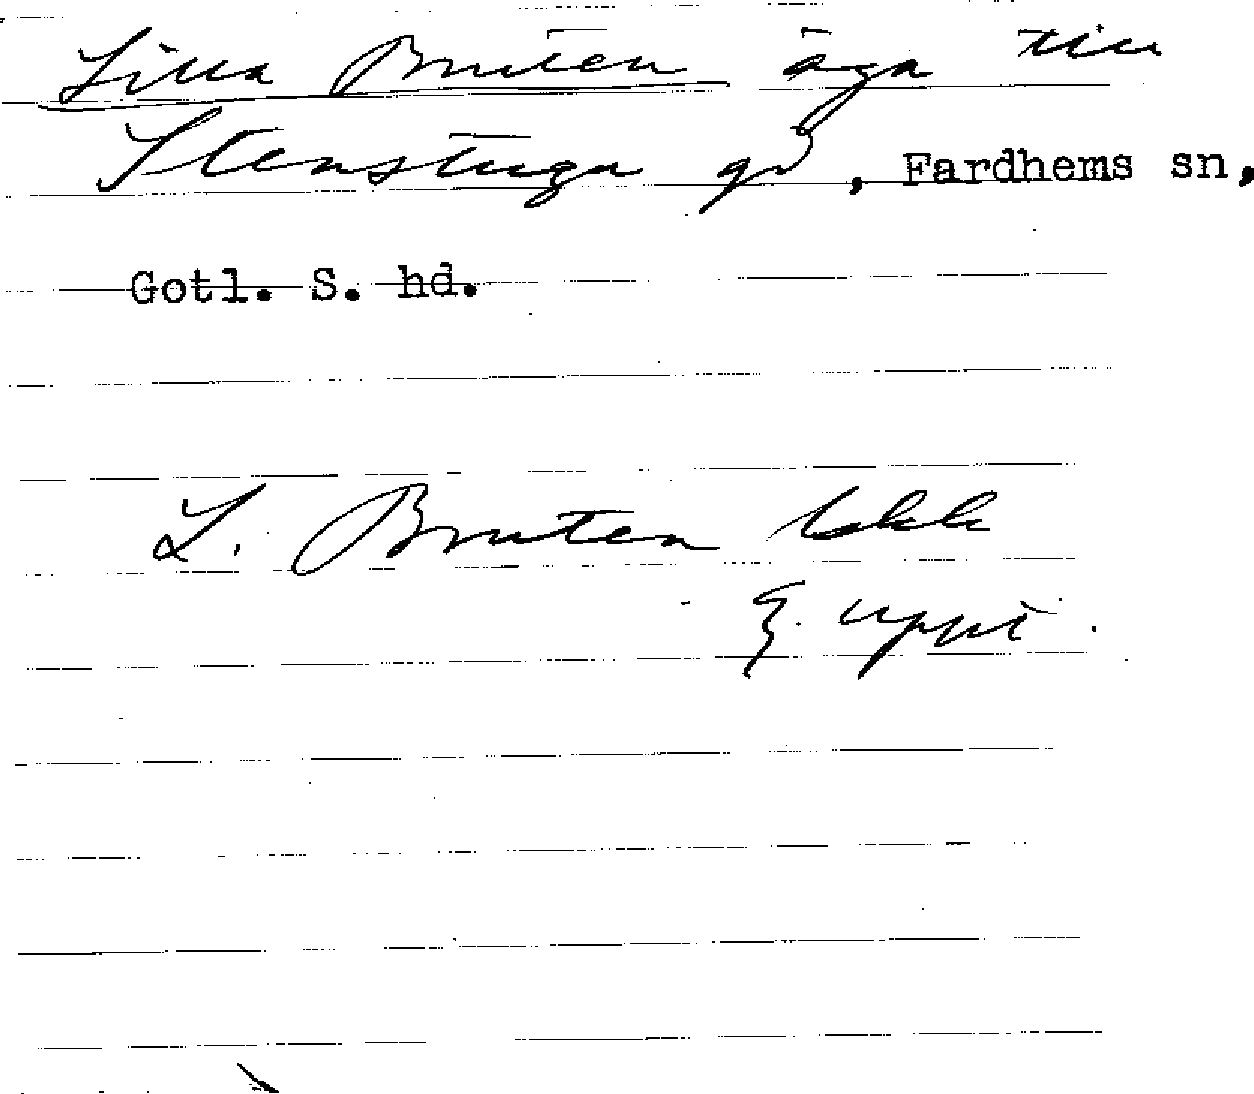 Lilla Bruten äga till
Stenstuga gd, Fardhems sn,
Gotl. S. hd.
L. Bruten Ekk
E. uppt.